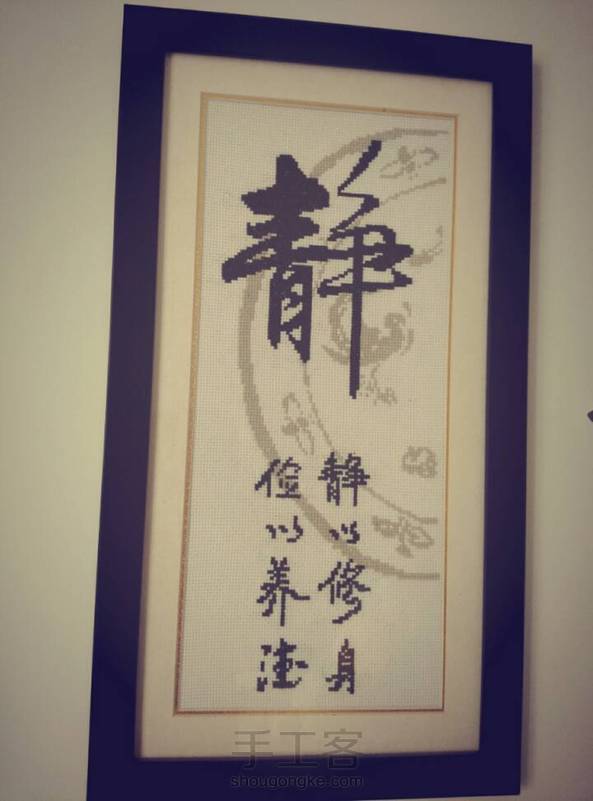 静
静以修身
俭以养德
手工客
shougongke.com